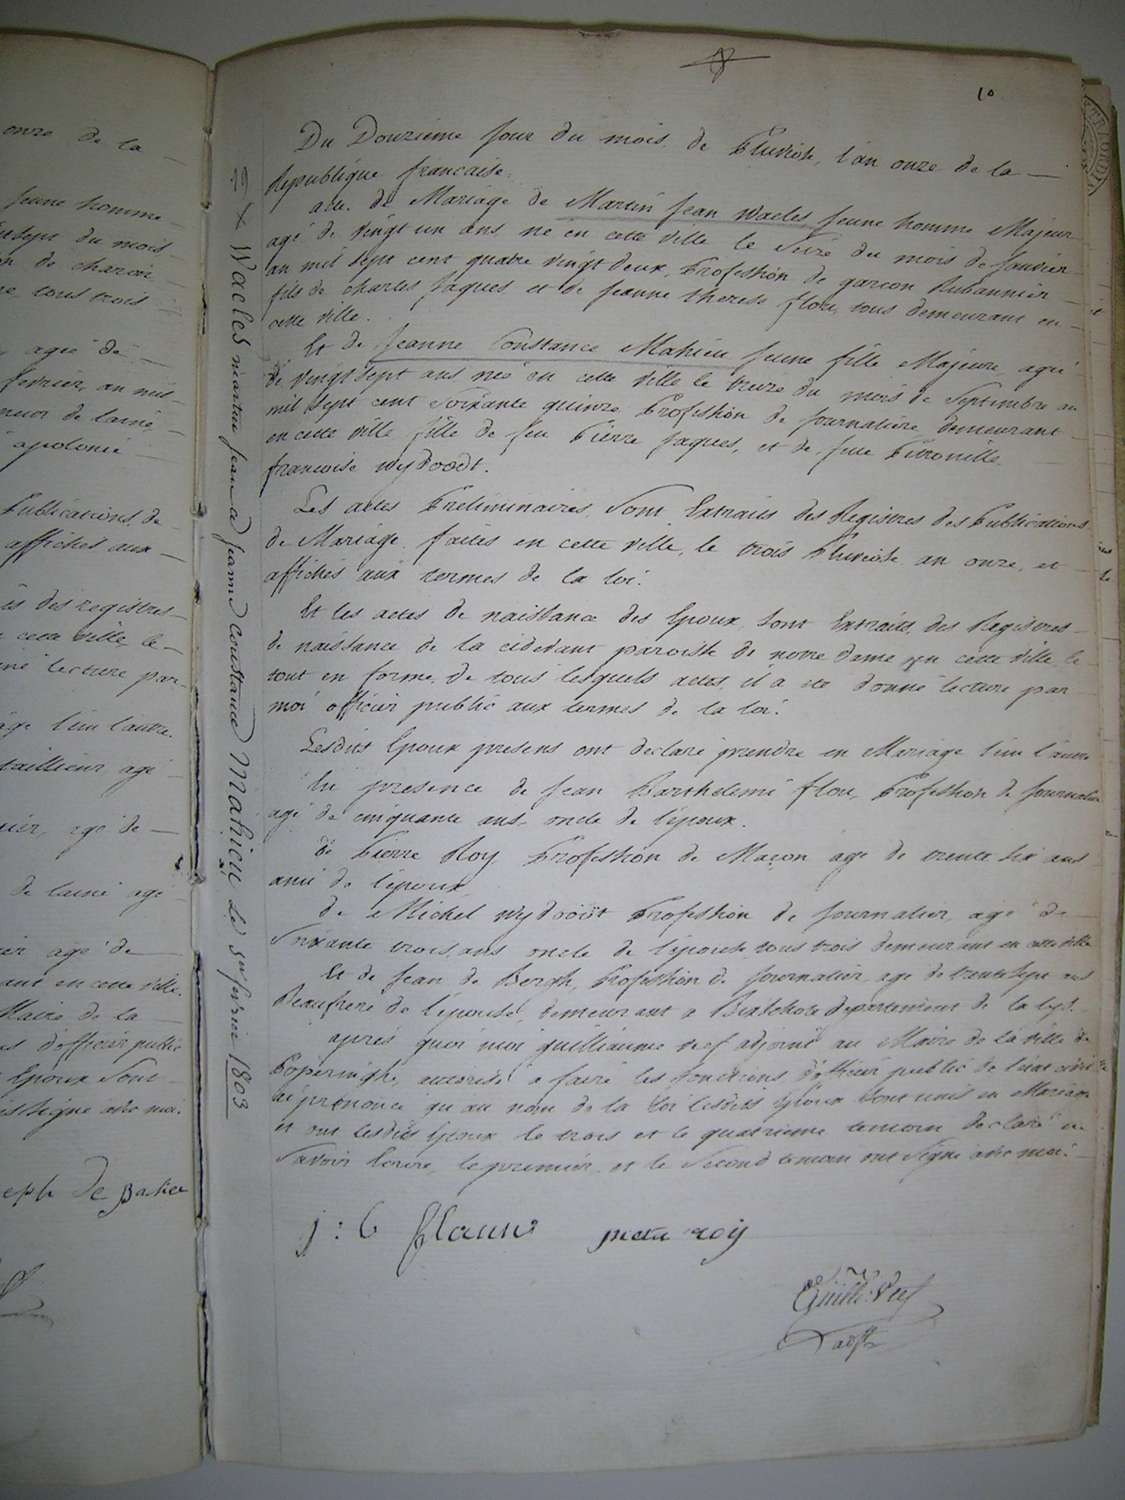 10
Du Douzieme jour du mois de Pluviose, l'an onze de la
Republique francaise.
acte de Mariage de Martin Jean Waeles Jeune homme Majeur
agé de vingt un ans né en cette ville le Seize du mois de Janvier
an mil sept cent quatre vingt deux, Profession de garcon Rubannier
fils de charles Jaques et de Jeanne therese flou, tous demeurant en
cette ville.
Et de Jeanne Constance Mahieu Jeune fille Majeure agée
de vingt sept ans née en cette ville le treize du mois de Septembre an
mil Sept cent Soixante quinze Profession de journaliere demeurant
en cette ville fille de feu Pierre Jaques, et de feue Petronille
francoise wydoodt.
Les actes Preliminaires, Sont Extraits des Registres des Publications
de Mariage faites en cette ville, le trois Pluviose an onze, et
affichés aux termes de la loi.
Et les actes de naissance des Epoux, Sont Extraits des Registres
de naissance de la cidevant paroisse de notre dame en cette ville, le
tout en forme, de tous lesquels actes, il a eté donné lecture par
moi officier public aux termes de la loi.
Lesdits Epoux presens ont declaré prendre en Mariage l'un l'autre
En presence de Jean Barthelemi flou, Profession de journalier
agé de cinquante ans, oncle de l'epoux.
de Pierre Roy Profession de Maçon agé de trente six ans
ami de l'epoux
de Michel wydoodt Profession de journalier, agé de
Soixante trois ans oncle de l'épouse, tous trois demeurant en cette ville
Et de Jean de Bergh, Profession de journalier agé de trente Sept ans
Beaufrere de l'épouse, demeurant a Bixschote departement de la lys.
après quoi moi guilliaume reef adjoint au Maire de la ville de
Poperinghe, autorisé a faire les fonctions d'officier public de l'état civil
ai prononcé qu'au nom de la Loi lesdits Epoux Sont unis en Mariage
et ont lesdits Epoux le trois et le quatrieme temoin declaré ne
Savoir Ecrire, le premier et le Second temoin ont Signé avec moi.
roij
19 X Waeles martin jean a jeanne constance Mahieu Le 1803
onze de la
Jeune homme
du mois
de
tous trois
agé de
fevrier, an mil
de laine
apolonie
Publications de
affiches aux
des registres
cette ville, le
lecture par
l'un l'autre.
taillieur agé
agé de
de laine agé
agé de
en cette ville.
Maire de la
d'officier public
Epoux Sont
Signé avec moi.
eph De Backer